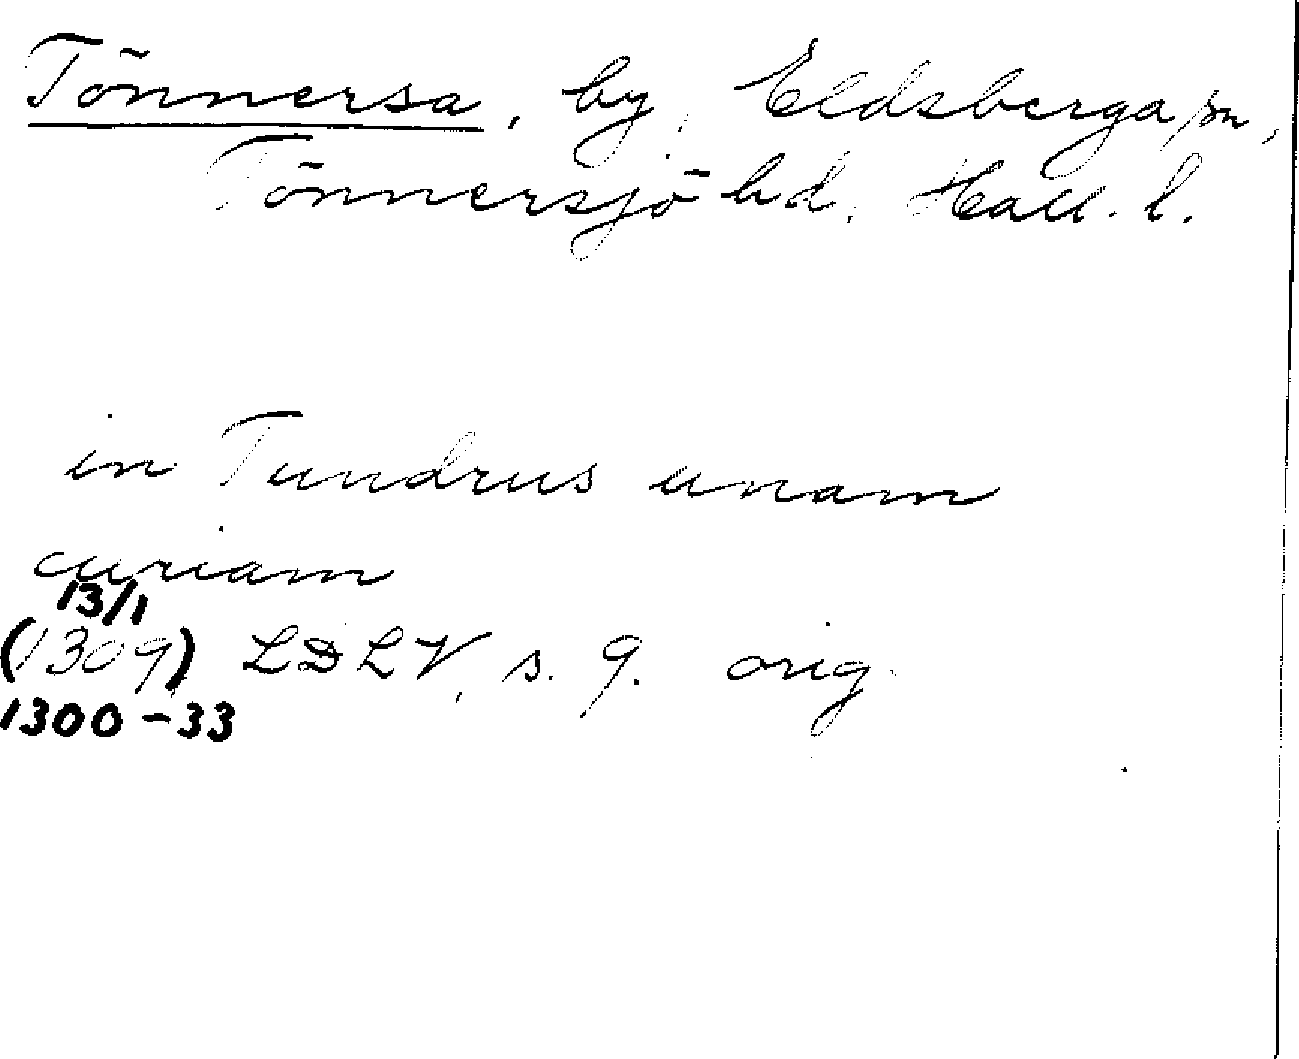 Tönnersa, by, Eldsberga sn,
Tönnersjö hd, Hall. l.
in Tundrus unam
curiam
13/1
(1309) LDLV, s. 9. orig.
1300-33